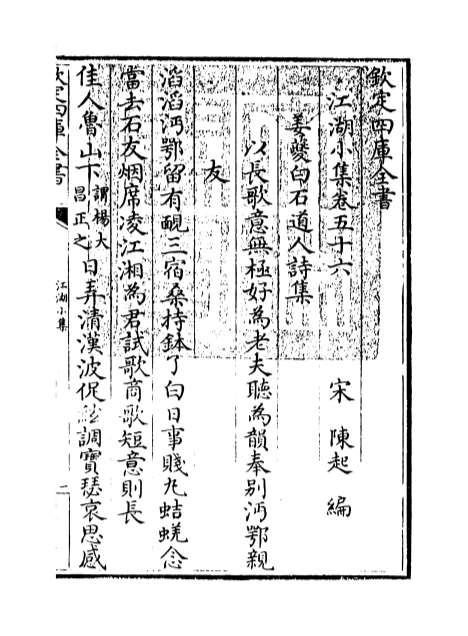 欽定四庫全書
江湖小集卷五十六
宋 陳起 編
姜夔白石道人詩集
以長歌意無極好為老夫聽為韻奉别沔鄂親
友
滔滔沔鄂留有靦三宿桑持鉢了白日事賤九蛣蜣念
當去石友烟席凌江湘為君試歌商歌短意則長
佳人魯山下謂楊大昌正之日弄清漢波促絃調寶瑟哀思感
欽定四庫全書
江湖小集